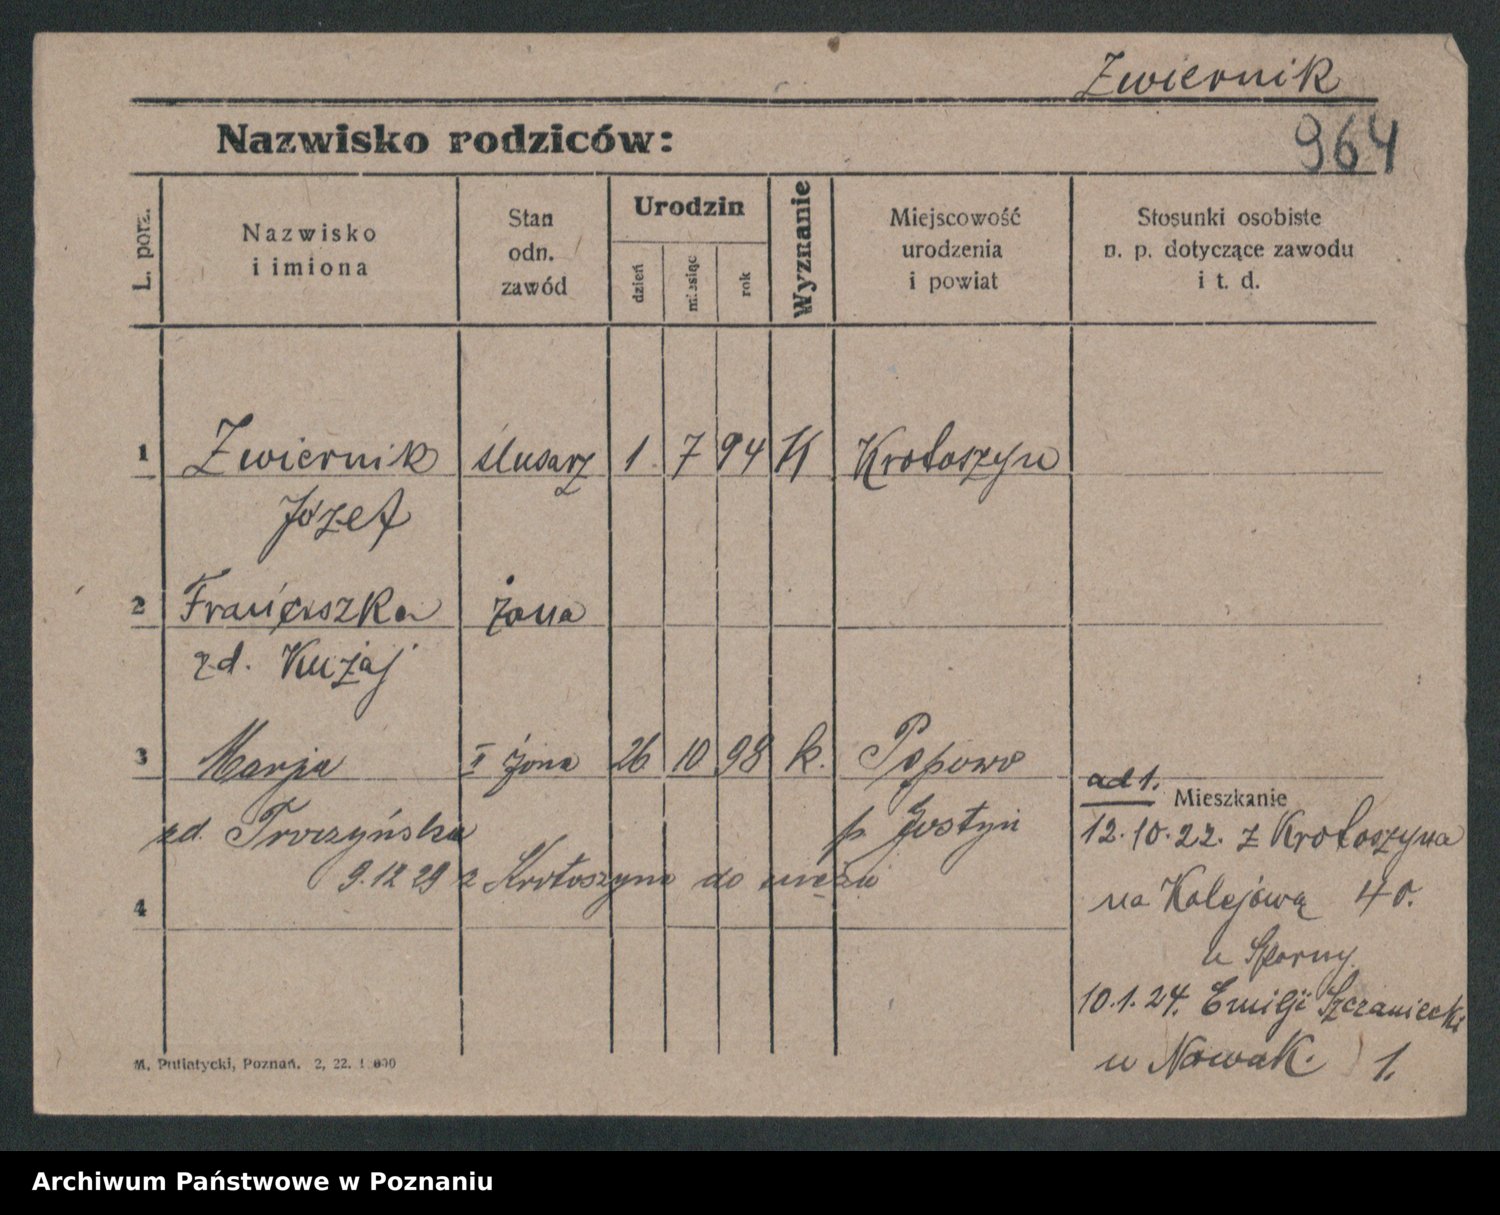 Zwiernik
Nazwisko rodziców:
964
L. porz.
Nazwisko
i imiona
Stan
odn.
zawód
Urodzin
dzień
miesiąc
rok
Wyznanie
Miejscowość
urodzenia
i powiat
Stosunki osobiste
n. p. dotyczące zawodu
i t. d.
1 Zwiernik ślusarz 1 7 94 K Krotoszyn
Józef
2 Franciszka żona
zd. Kużaj
3 Marja II żona 26 10 98 k. Popowo
zd. Troczyńska p. Gostyń
9.12 29 z Krotoszyna do męża
4
ad 1. Mieszkanie
12.10.22. z Krotoszyna
na Kolejową 40.
u Sporny
10.1.24. Emilji Szczanieckiej
u Nowak. 1.
M. Putiatycki, Poznań. 2, 22. 1 000
Archiwum Państwowe w Poznaniu